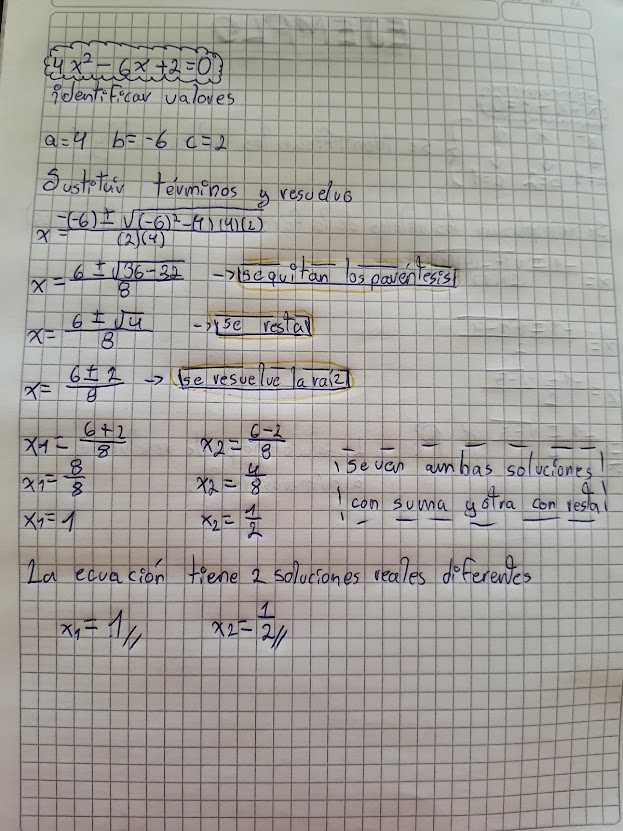 4x² - 6x + 2 = 0
identificar valores
a=4 b=-6 c=2
Sustituir términos y resuelvo
x = -(-6) ± √(-6)² - (4)(4)(2) / (2)(4)
x = 6 ± √36-32 / 8 → se quitan los paréntesis
x = 6 ± √4 / 8 → se resta
x = 6 ± 2 / 8 → se resuelve la raíz
x1 = 6+2 / 8 x2 = 6-2 / 8
x1 = 8/8 x2 = 4/8 se ven ambas soluciones
x1 = 1 x2 = 1/2 con suma y otra con resta
La ecuación tiene 2 soluciones reales diferentes
x1 = 1// x2 = 1/2//